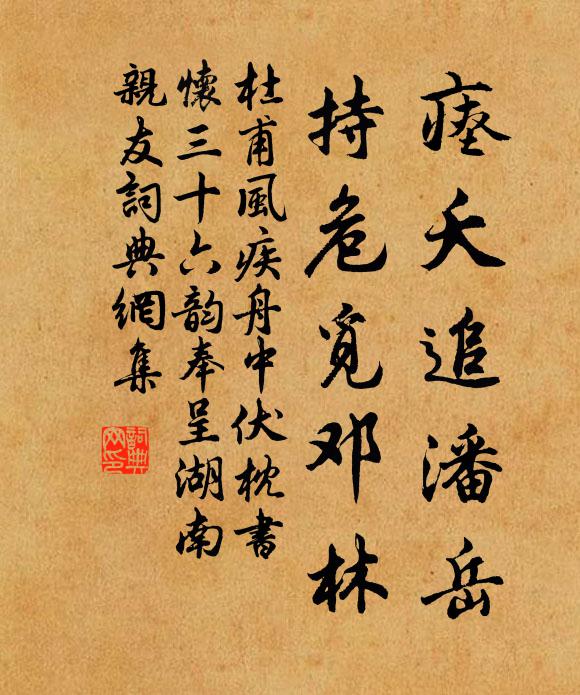 瘗夭追潘岳
持危觅邓林
杜甫風疾舟中伏枕書
懷三十六韵奉呈湖南
親友詞典網集
詞典
网印